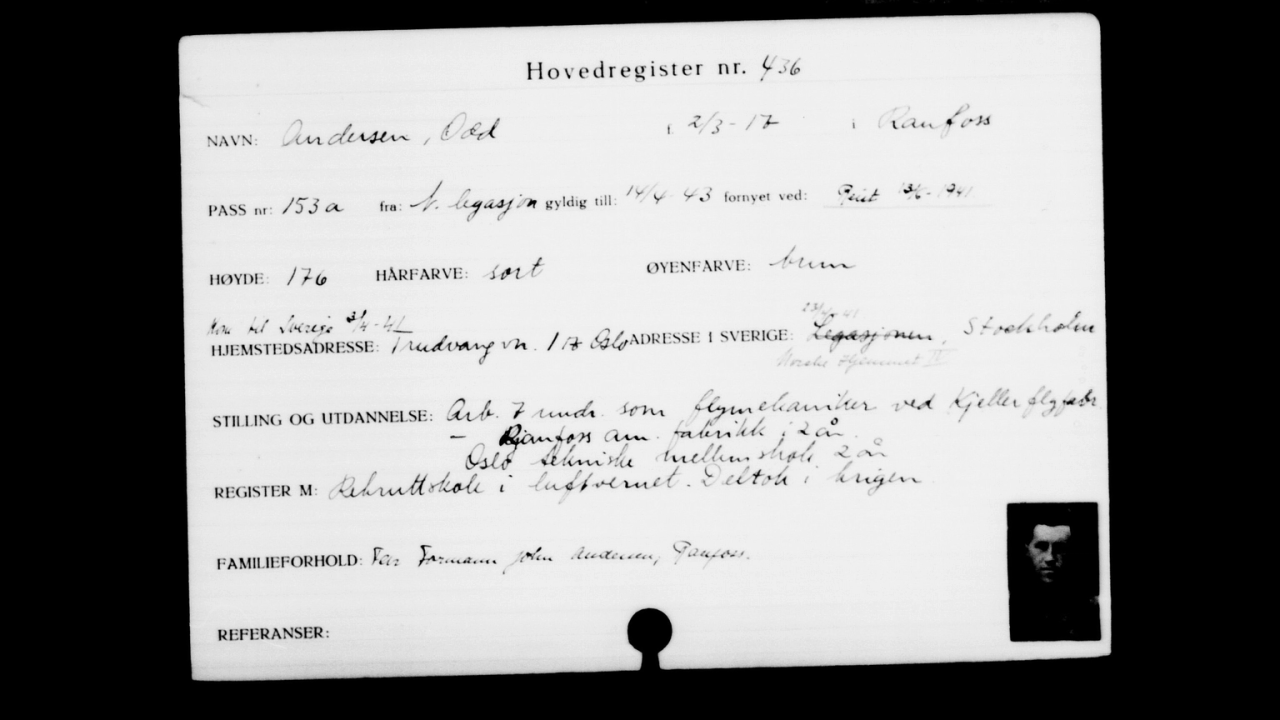 Hovedregister nr. 436
NAVN: Andersen, Odd f. 2/3-17 i Raufoss
PASS nr: 153a fra: N. legasjon gyldig till: 14/4 43 fornyet ved: Reist 1941
HØYDE: 176 HÅRFARVE: sort ØYENFARVE: brun
Kom til Sverige 3/4-41 23/4-41
HJEMSTEDSADRESSE: Trudvangvn. 17 Oslo ADRESSE I SVERIGE: Legasjonen, Stockholm
Norske Hjemmet IV
STILLING OG UTDANNELSE: Arb. 7 mndr. som flymekaniker ved Kjeller flyfabr.
— Raufoss am. fabrikk i 2 år.
Oslo tekniske mellemskole 2 år
REGISTER M: Rekruttskole i luftvernet. Deltok i krigen.
FAMILIEFORHOLD: Far Formann John Andersen, Raufoss.
REFERANSER: